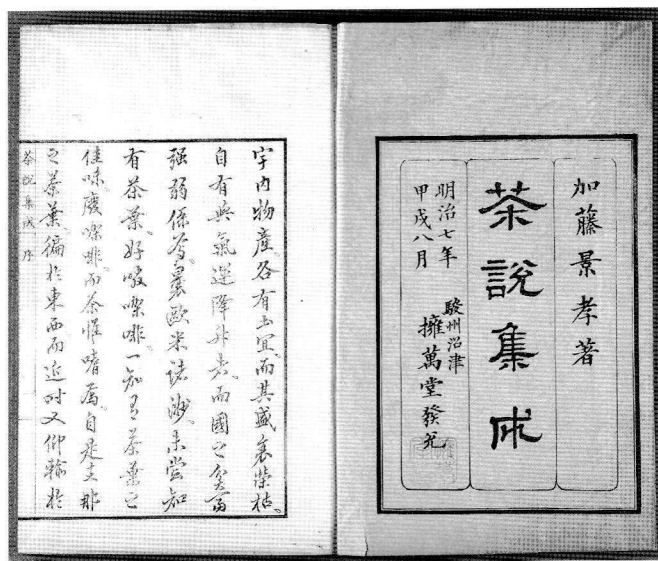 加藤景孝著
茶說集成
明治七年
甲戌八月
駿州沼津
擁萬堂發兌
宇内物產各有土宜而其盛衰榮枯
自有與氣運降升者而國之貧富
强弱係焉曩歐米諸洲未嘗知
有茶葉好啜㗎啡一知有茶葉之
佳味廢㗎啡而茶惟嗜焉自是支那
之茶葉徧於東西而近時又仰輸於
茶說集成 序